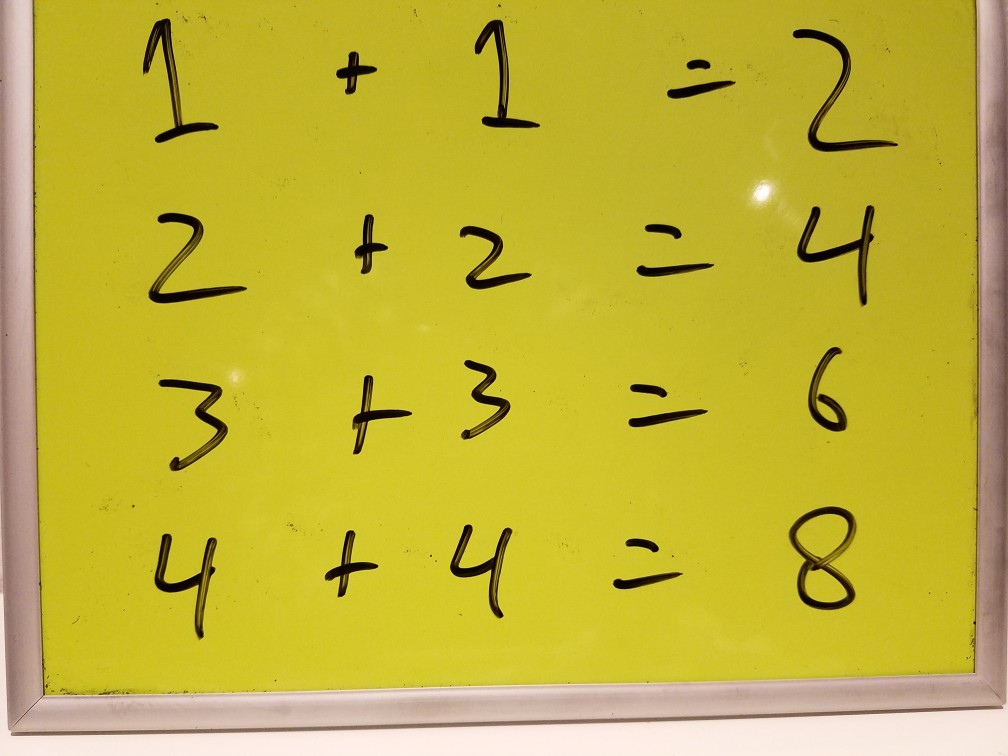 1 + 1 = 2
2 + 2 = 4
3 + 3 = 6
4 + 4 = 8